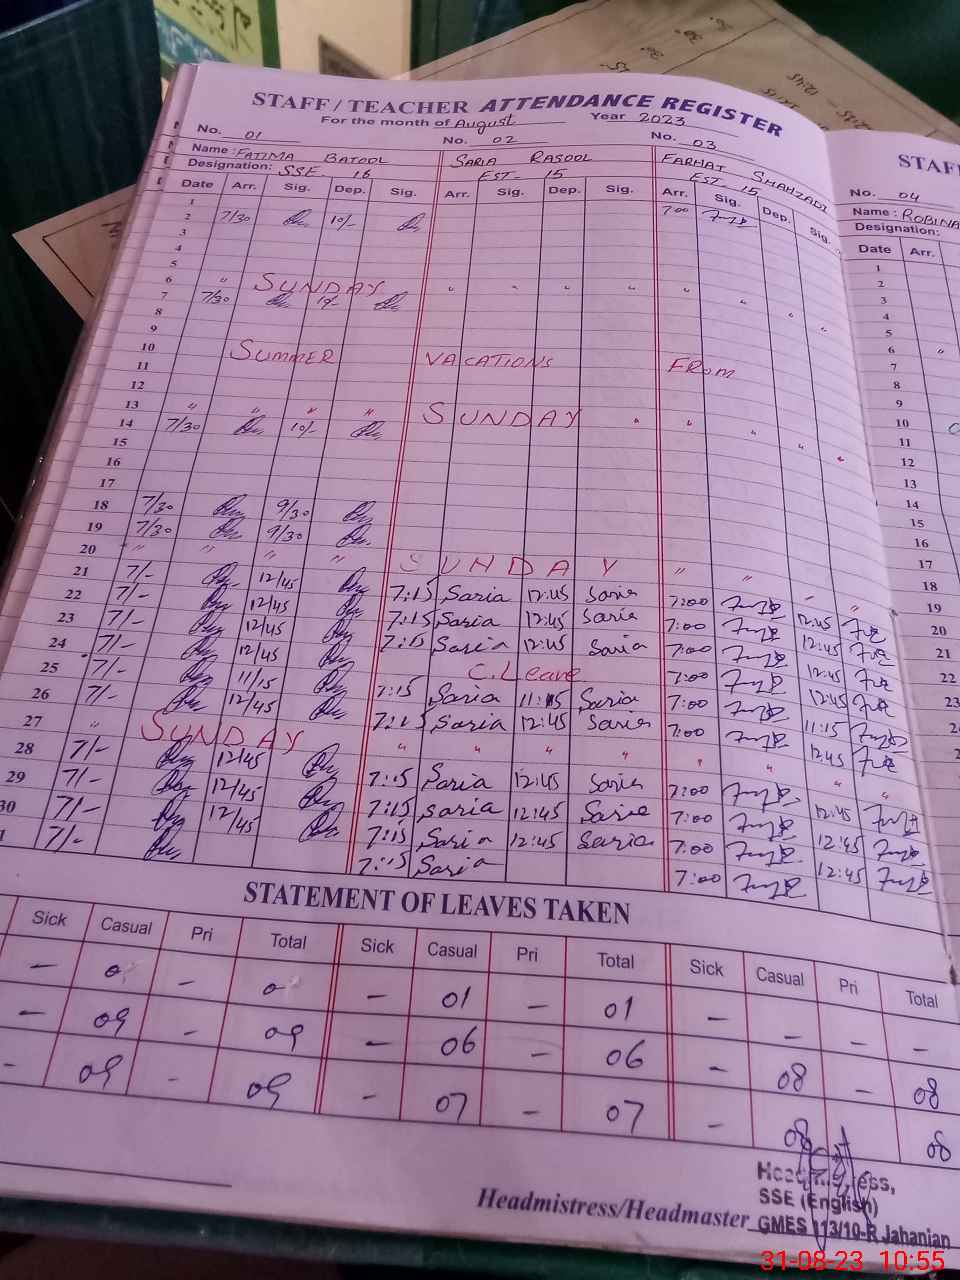 STAFF / TEACHER ATTENDANCE REGISTER
For the month of August Year 2023
No. 01 No. 02 No. 03
Name : FATIMA BATOOL SARIA RASOOL FARHAT SHAHZADI
Designation: SSE 16 EST- 15 EST- 15
Date Arr. Sig. Dep. Sig. Arr. Sig. Dep. Sig. Arr. Sig. Dep. Sig.
1 7:00
2 7/30 10/-
3
4
5
6 " SUNDAY " " " " " " " "
7 7/30
8
9
10 SUMMER VACATIONS FROM
11
12
13 " " " " SUNDAY " " " " "
14 7/30 10/-
15
16
17
18 7/30 9/30
19 7/30 9/30
20 " " " " SUNDAY " " " "
21 7/- 12/45 7:15 Saria 12:45 Saria 7:00 12:45
22 7/- 12/45 7:15 Saria 12:45 Saria 7:00 12:45
23 7/- 12/45 7:15 Saria 12:45 Saria 7:00 12:45
24 7/- 12/45 C. Leave 7:00 12:45
25 7/- 11/15 7:15 Saria 11:15 Saria 7:00 11:15
26 7/- 12/45 7:15 Saria 12:45 Saria 7:00 12:45
27 " SUNDAY " " " " " " " "
28 7/- 12/45 7:15 Saria 12:45 Saria 7:00 12:45
29 7/- 12/45 7:15 Saria 12:45 Saria 7:00 12:45
30 7/- 12/45 7:15 Saria 12:45 Saria 7:00 12:45
1 7/- 7:15 Saria 7:00
STATEMENT OF LEAVES TAKEN
Sick Casual Pri Total Sick Casual Pri Total Sick Casual Pri Total
- 0 - 0 - 01 - 01 - - - -
- 09 - 09 - 06 - 06 - 08 - 08
- 09 - 09 - 07 - 07 - 08 08
Headmistress/Headmaster
Headmistress,
SSE (English)
GMES 113/10-R Jahanian
STAF
No. 04
Name : ROBINA
Designation:
Date Arr.
1
2
3
4
5
6 "
7
8
9
10
11
12
13
14
15
16
17
18
19
20
21
22
23
31-08-23 10:55